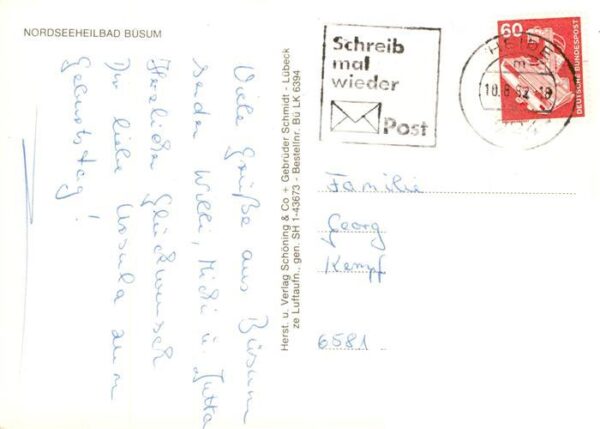 NORDSEEHEILBAD BÜSUM
Viele Grüße aus Büsum
senden Willi, Michi u. Jutta
Herzlichen Glückwunsch
Dir liebe Ursula zum
Geburtstag!
Herst. u. Verlag Schöning & Co + Gebrüder Schmidt - Lübeck
ze Luftaufn., gen. SH 1-43673 - Bestellnr. Bü LK 6394
Schreib
mal
wieder
Post
HEIDE
60
DEUTSCHE BUNDESPOST
Familie
Georg
Kempf
6581